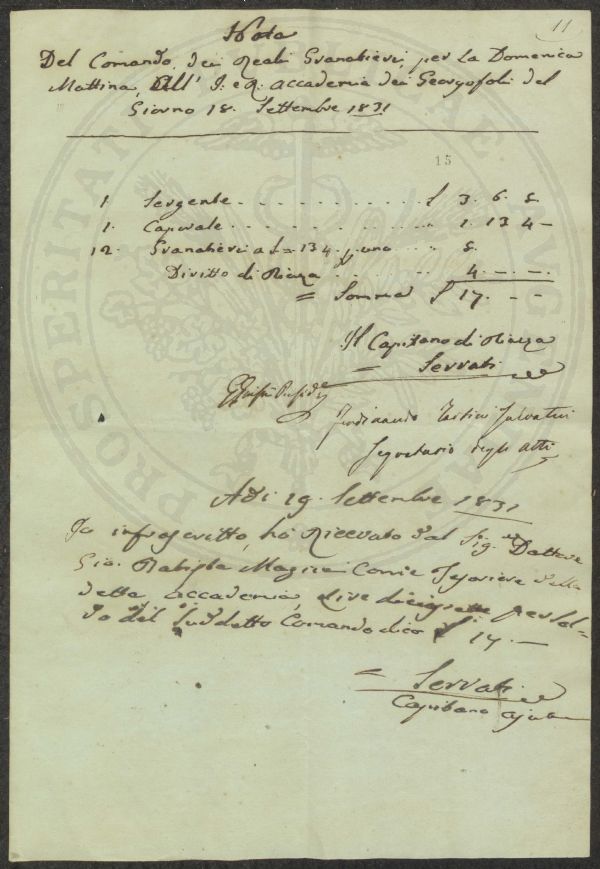 11
Nota
Del Comando, dei Reali Granatieri, per La Domenica
Mattina, All' I. e R. accademia dei Georgofoli del
Giorno 18. Settembre 1831
15
1. Sergente . . . . . . . . . . £ 3. 6. 8.
1. Caporale . . . . . . . . . . 1. 13 4 —
12. Granatieri a £ = 13 4. p. uno . . 8.
Diritto di Piazza . . . . . 4. —. —.
= Somma £ 17. - -
Il Capitano di Piazza
= Serrati
Presid.e
Ferdinando Tartini Salvatici
Segretario degli atti
Adi 19. Settembre 1831
Io infrascritto, ho Ricevuto dal Sig.re Dottore
Gio. Batista Magini Come Tesoriere della
detta accademia, Lire diciasette per Sal=
do del Suddetto Comando dico £ 17. —
= Serrati
Capitano
PROSPERITATI PUBLICAE AUGENDAE